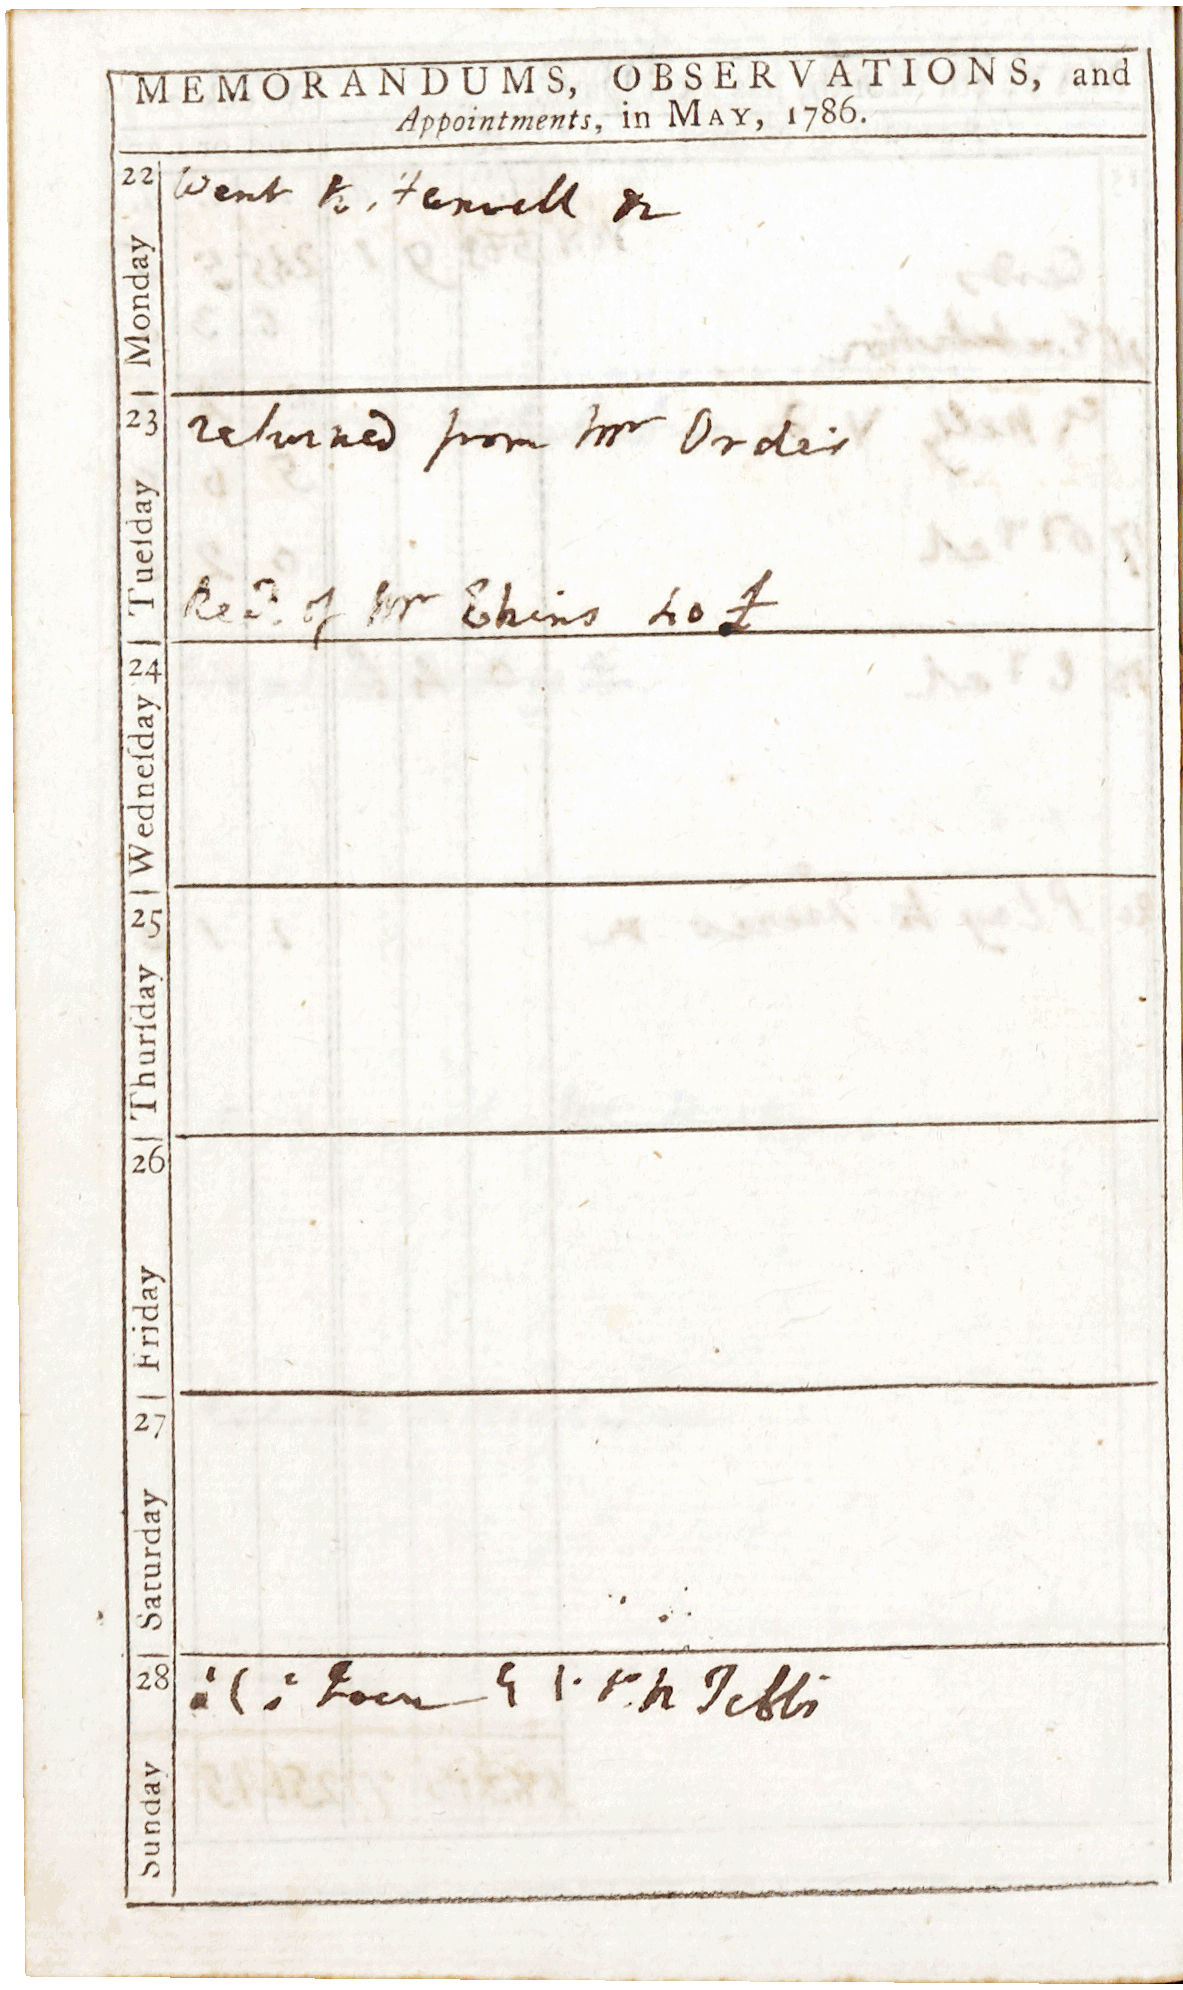 MEMORANDUMS, OBSERVATIONS, and
Appointments, in MAY, 1786.
22 Monday
Went to
23 Tueſday
returned from Mr Ordes
Recd. of Mr Ekins 40 £
24 Wedneſday
25 Thurſday
26 Friday
27 Saturday
28 Sunday
Tebbs